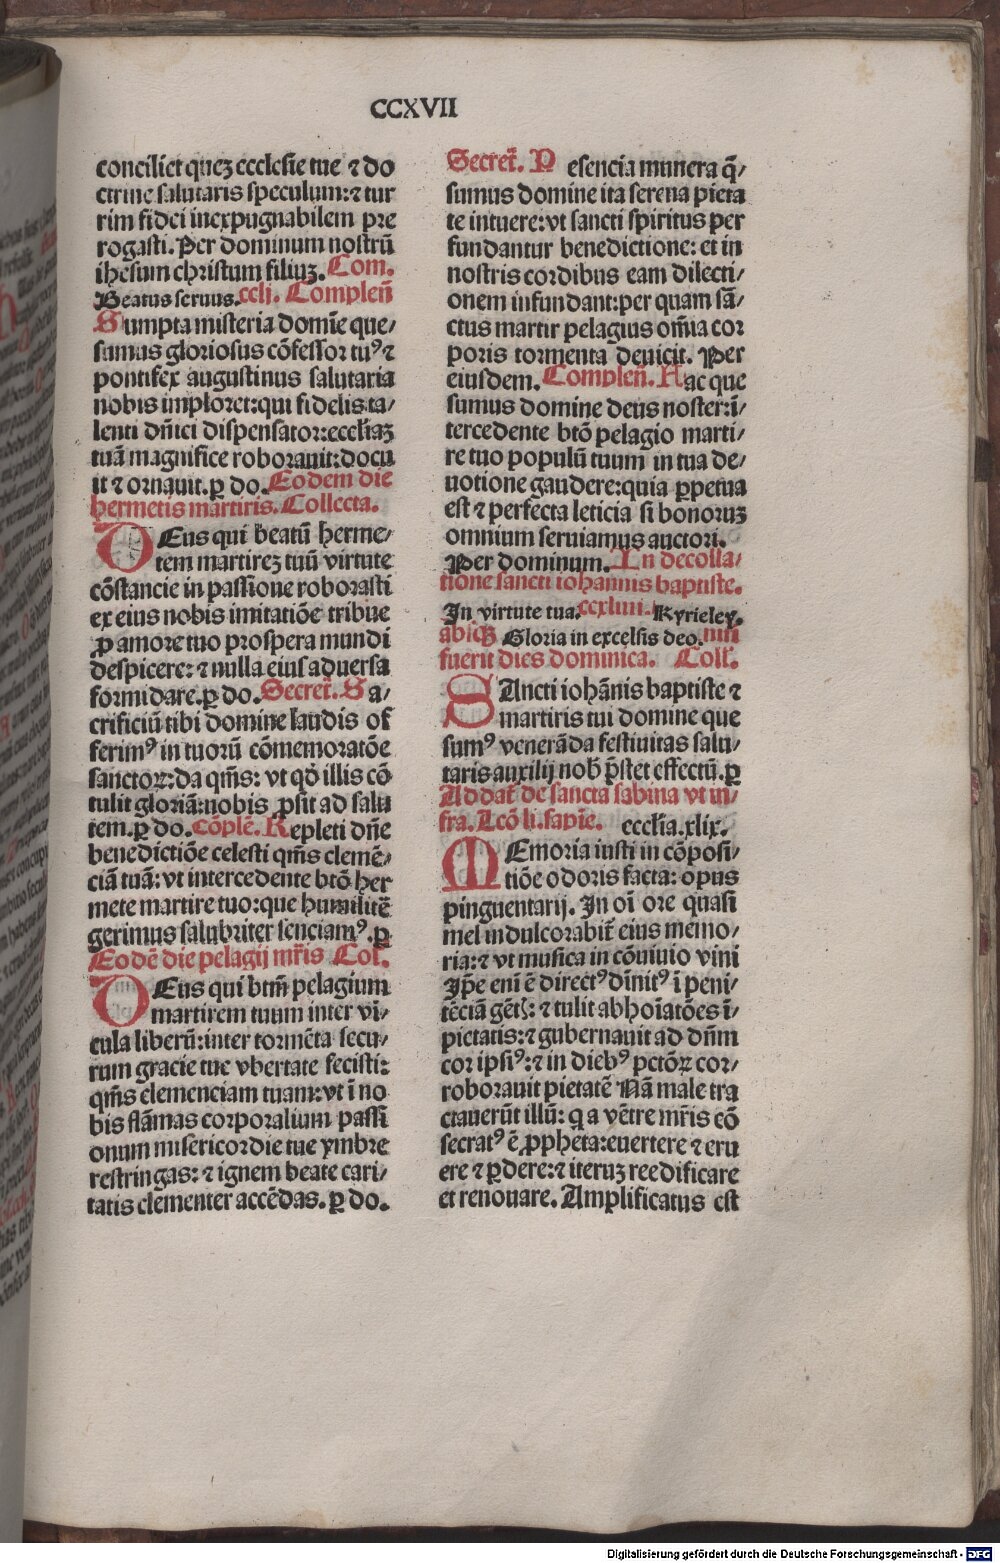 CCXVII
conciliet queʒ ecclesie tue ⁊ do
ctrine salutaris speculum:⁊ tur
rim fidei inexpugnabilem pre
rogasti. Per dominum nostrū
ihesum christum filiuʒ. Com.
Beatus seruus. ccli. Compleñ
Sumpta misteria domīe que⸗
sumus gloriosus cōfessor tuꝰ ⁊
pontifex augustinus salutaria
nobis imploret:qui fidelis ta⸗
lenti dñici dispensator:eccliaʒ
tuā magnifice roborauit:docu
it ⁊ ornauit. ꝑ do. Eodem die
hermetis martiris. Collecta.
DEus qui beatū herme⸗
tem martireʒ tuū virtute
cōstancie in passione roborasti
ex eius nobis imitatiōe tribue
ꝓ amore tuo prospera mundi
despicere: ⁊ nulla eius aduersa
formidare. ꝑ do. Secret̄. Sa⸗
crificiū tibi domine laudis of
ferimꝰ in tuorū cōmemoratōe
sanctoꝝ:da qm̄s: vt qđ illis cō
tulit gloriā:nobis ꝓsit ad salu
tem. ꝑ do. cōplē. Repleti dñe
benedictiōe celesti qm̄s clemē⸗
ciā tuā: vt intercedente btō her
mete martire tuo:que humilitē
gerimus salubriter senciamꝰ. ꝑ
Eodē die pelagij mr̄is Col.
DEus qui btm̄ pelagium
martirem tuum inter vi⸗
cula liberū:inter tormēta secu⸗
rum gracie tue vbertate fecisti:
qm̄s clemenciam tuam:vt ī no
bis flāmas corporalium passi
onum misericordie tue ymbre
restringas: ⁊ ignem beate cari⸗
tatis clementer accēdas. ꝑ do.
Secret̄. P esencia munera q̄⸗
sumus domine ita serena pieta
te intuere:vt sancti spiritus per
fundantur benedictione: et in
nostris cordibus eam dilecti⸗
onem infundant:per quam sā⸗
ctus martir pelagius om̄ia cor
poris tormenta deuicit. Per
eiusdem. Compleñ. Hac que
sumus domine deus noster:ī⸗
tercedente btō pelagio marti⸗
re tuo populū tuum in tua de⸗
uotione gaudere:quia ꝑpetua
est ⁊ perfecta leticia si bonoruʒ
omnium seruiamus auctori.
Per dominum. In decolla⸗
tione sancti iohannis baptiste.
In virtute tua. ccxliiii. Kyrieley.
absqʒ Gloria in excelsis deo. nisi
fuerit dies dominica. Coll̄.
SAncti iohānis baptiste ⁊
martiris tui domine que
sumꝰ venerāda festiuitas salu⸗
taris auxilij nob̄ p̄stet effectū. ꝑ
Addat̄ de sancta sabina vt in⸗
fra. Lcō li. sapie. ecclīa. xlix.
MEmoria iusti in cōposi⸗
tiōe odoris facta: opus
pinguentarij. In oī ore quasi
mel indulcorabit̄ eius memo⸗
ria:⁊ vt musica in cōuiuio vini
Ip̄e enī ē directꝰ dīnitꝰ ī peni⸗
tēciā gēt̄: ⁊ tulit abhoīatōes ī⸗
pietatis:⁊ gubernauit ad dn̄m
cor ipsiꝰ:⁊ in diebꝰ pctōꝝ cor⸗
roborauit pietatē Nā male tra
ctauerūt illū: q a vētre mr̄is cō
secratꝰ ē ꝓpheta:euertere ⁊ eru
ere ⁊ ꝑdere:⁊ iteruʒ reedificare
et renouare. Amplificatus est
Digitalisierung gefördert durch die Deutsche Forschungsgemeinschaft - DFG